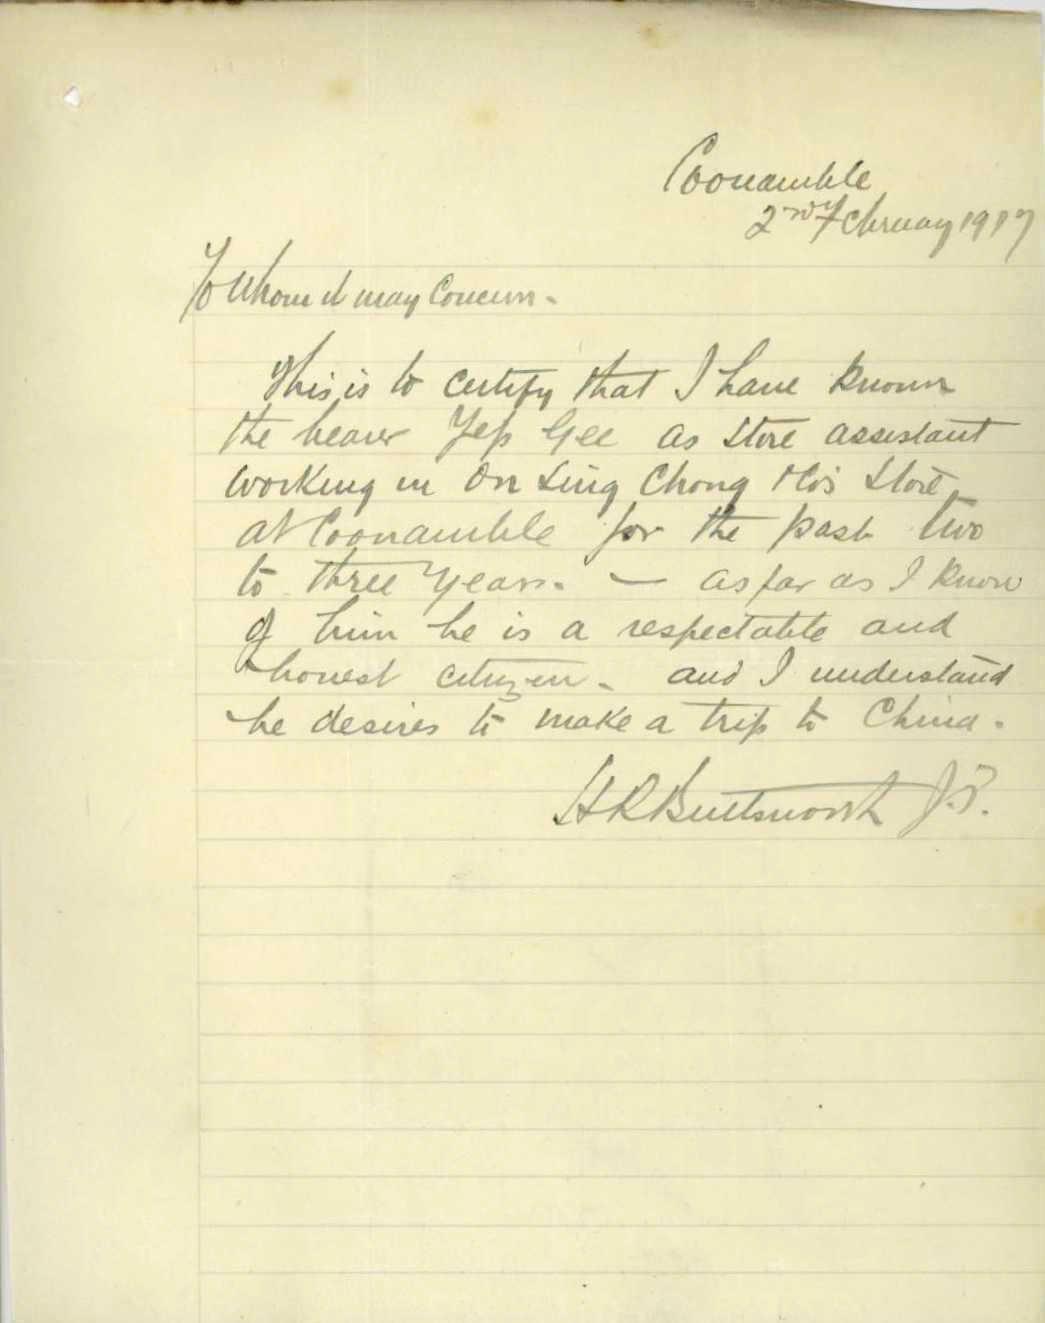 Coonamble
2nd February 1917
To Whom it may Concern -
This is to certify that I have known
the bearer Yep Gee as store assistant
working in On Sing Chong & Co's Store
at Coonamble for the past two
to three years. — as far as I know
of him he is a respectable and
honest citizen - and I understand
he desires to make a trip to China.
H R Buttsworth J.P.